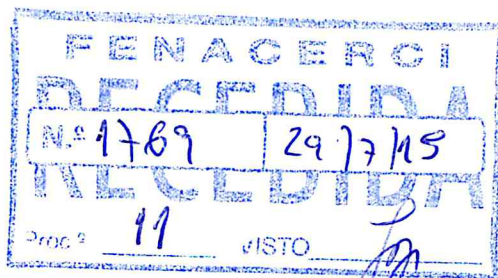 FENACERCI
RECEBIDA
N.º 1769 29/7/15
Proc.º 11 VISTO